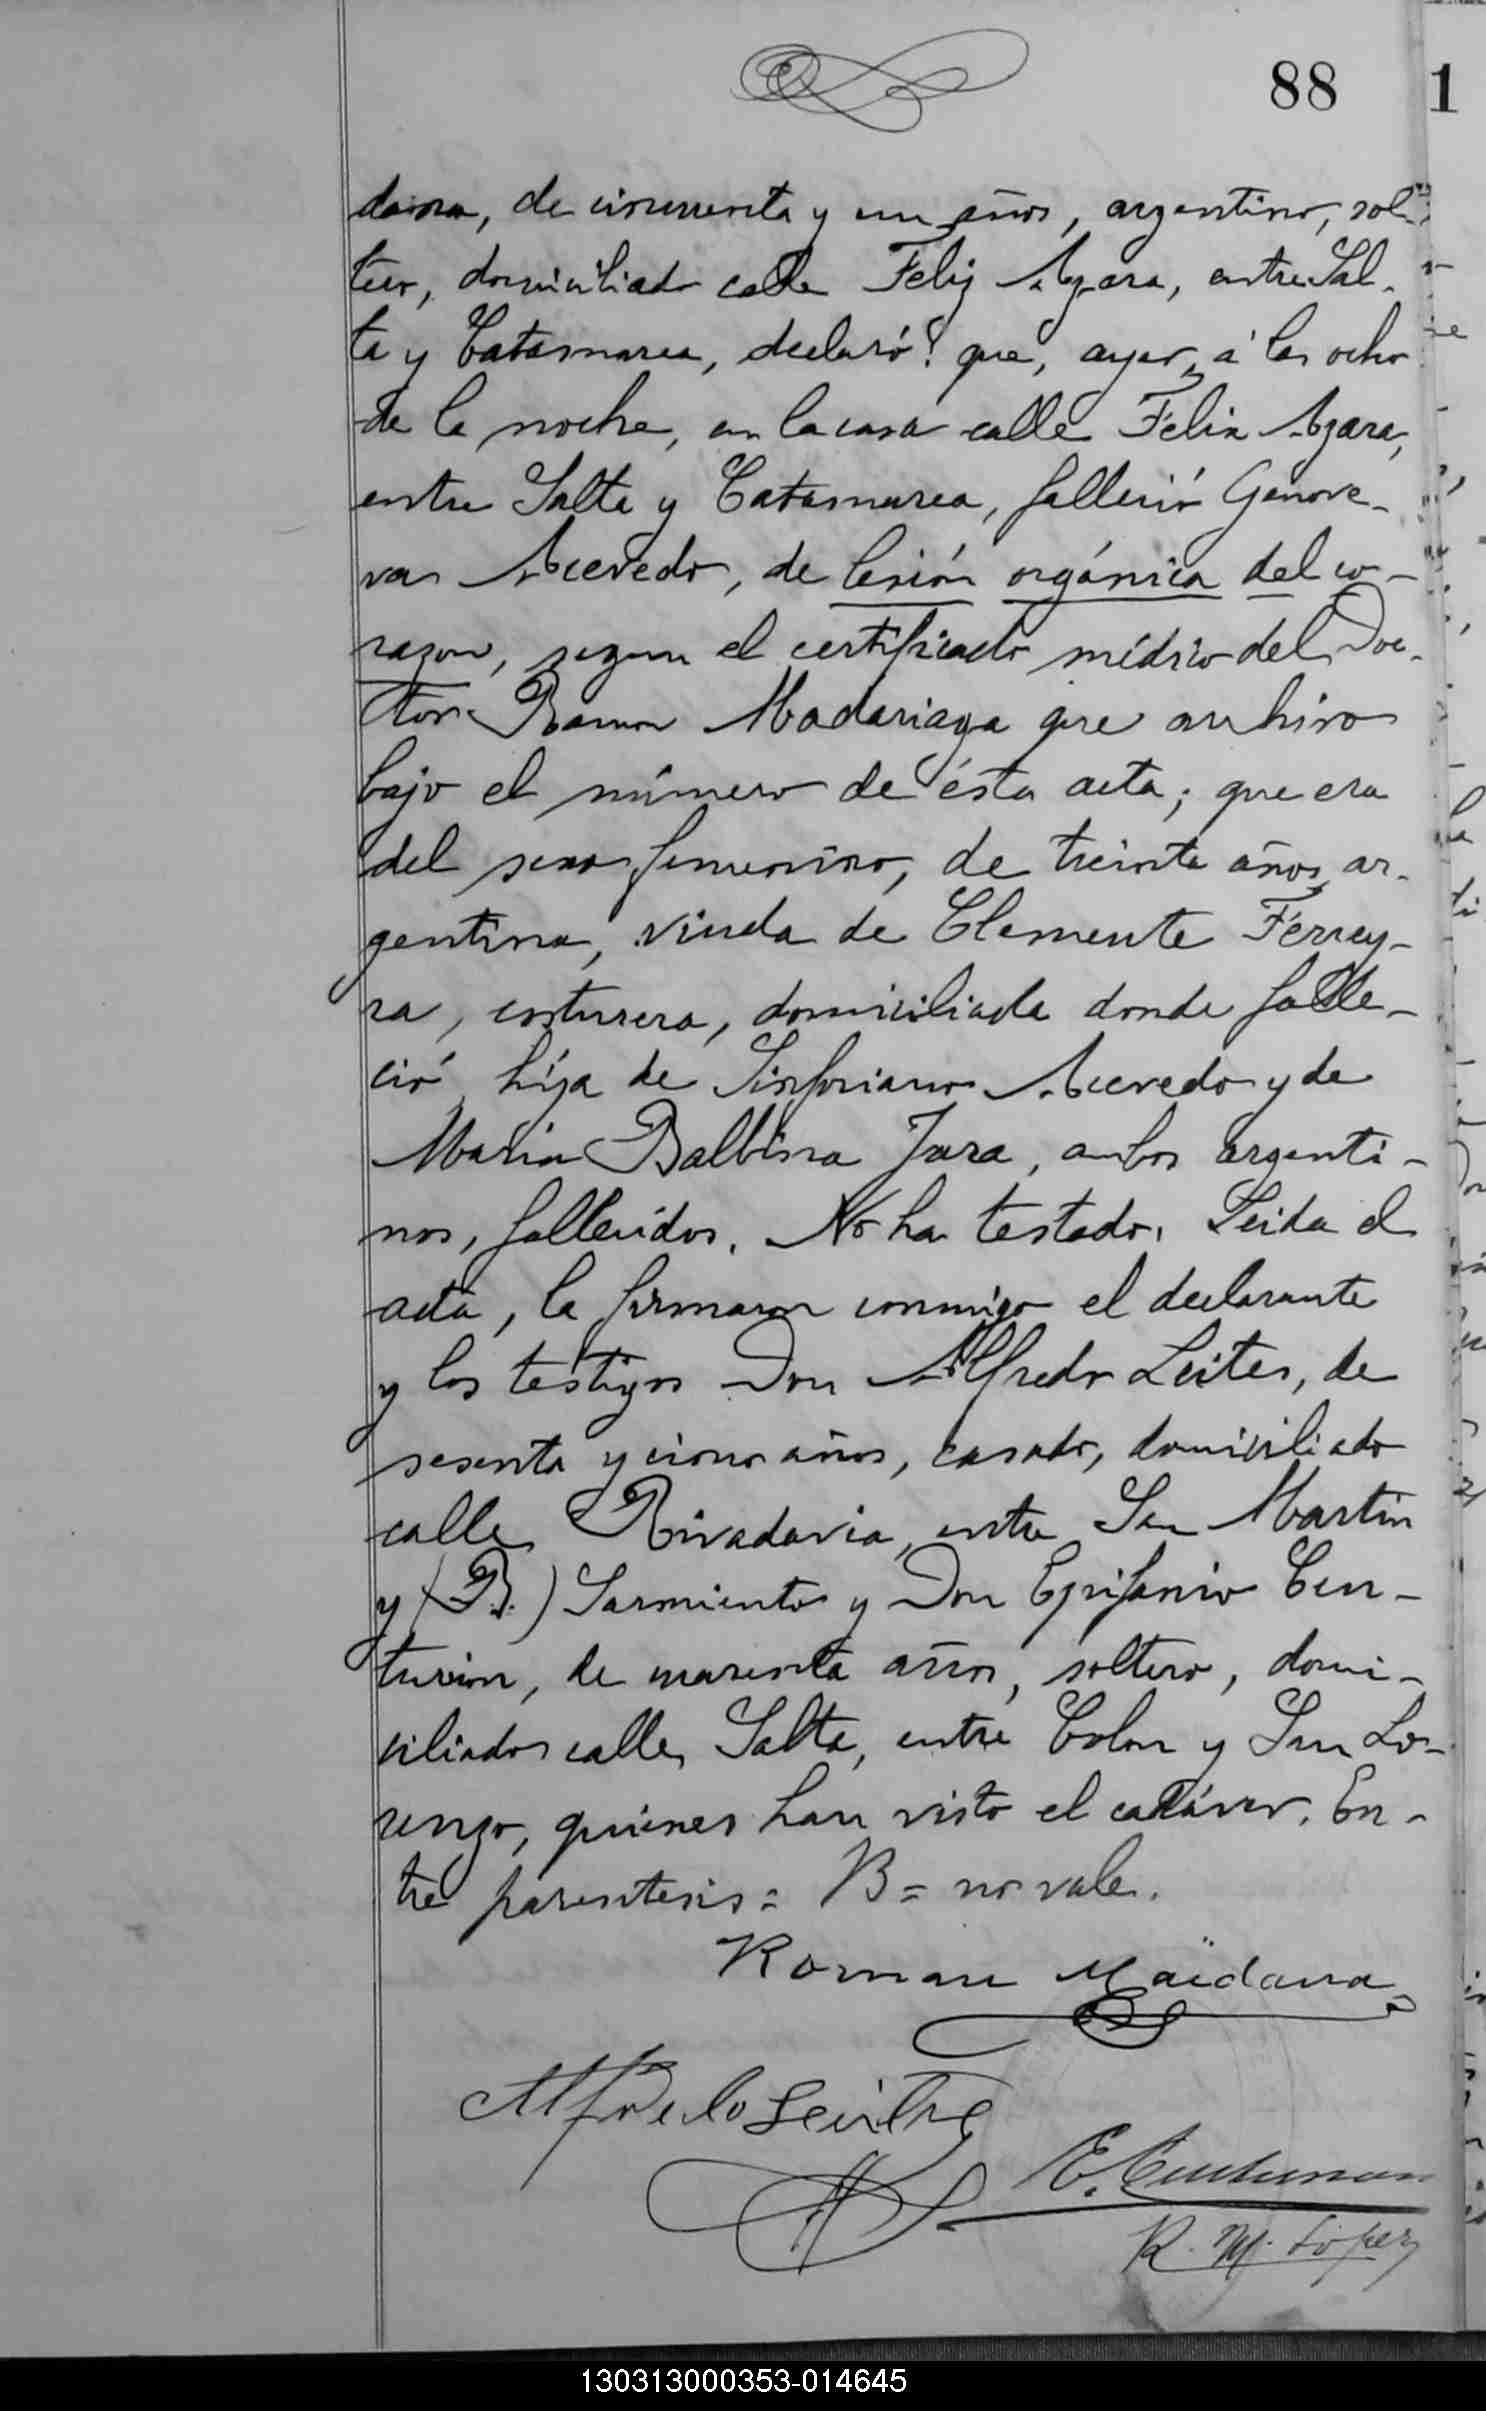 88
1
dana, de cincuenta y un años, argentino, sol-
tero, domiciliado calle Feliz Azara, entre Sal-
ta y Catamarca, declaró: que, ayer, á las ocho
de la noche, en la casa calle Felix Azara,
entre Salta y Catamarca, falleció Genove-
va Acevedo, de lesión orgánica del co-
razon, segun el certificado médico del Doc-
tor Ramon Madariaga que archivo
bajo el número de ésta acta; que era
del sexo femenino, de treinta años, ar-
gentina, viuda de Clemente Ferrey-
ra, costurera, domiciliada donde falle-
ció, hija de Sinforiano Acevedo y de
Maria Balbina Jara, ambos argenti-
nos, fallecidos. No ha testado. Leida el
acta, la firmaron conmigo el declarante
y los testigos Don Alfredo Leites, de
sesenta y cinco años, casado, domiciliado
calle Rivadavia, entre San Martin
y (B.) Sarmiento y Don Epifanio Cen-
turion, de cuarenta años, soltero, domi-
ciliados calle Salta, entre Colon y San Lo-
renzo, quienes han visto el cadáver. En-
tre parentesis = B = no vale.
Roman Maidana
Alfredo Leites
E. Centurion
R. M. Lopez
130313000353-014645